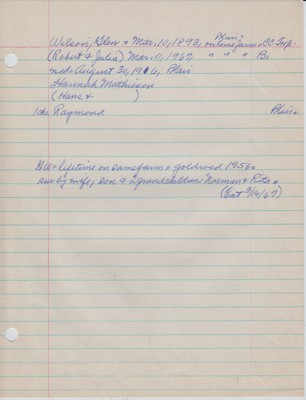 Plain
Wilson, Glen Mar. 10, 1893, on home farm, CC Twp.
(Robert & Julia) Mar. 11, 1967, " " " Bu
med August 30, 1916, Plain
Hannah Mathiesen
(Hans & )
1 ch: Raymond Plain
lifetime on same farm goldwed 1956
sur by wife, son & 2 grandchildren: Norman & Rita
(Ent 3/14/67)